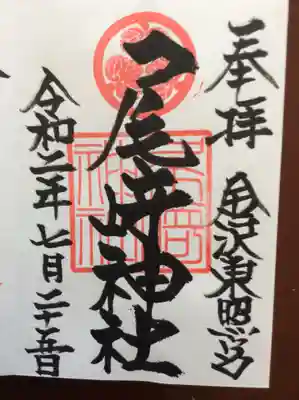 奉拝
金沢東照宮
尾﨑神社
令和二年七月二十五日